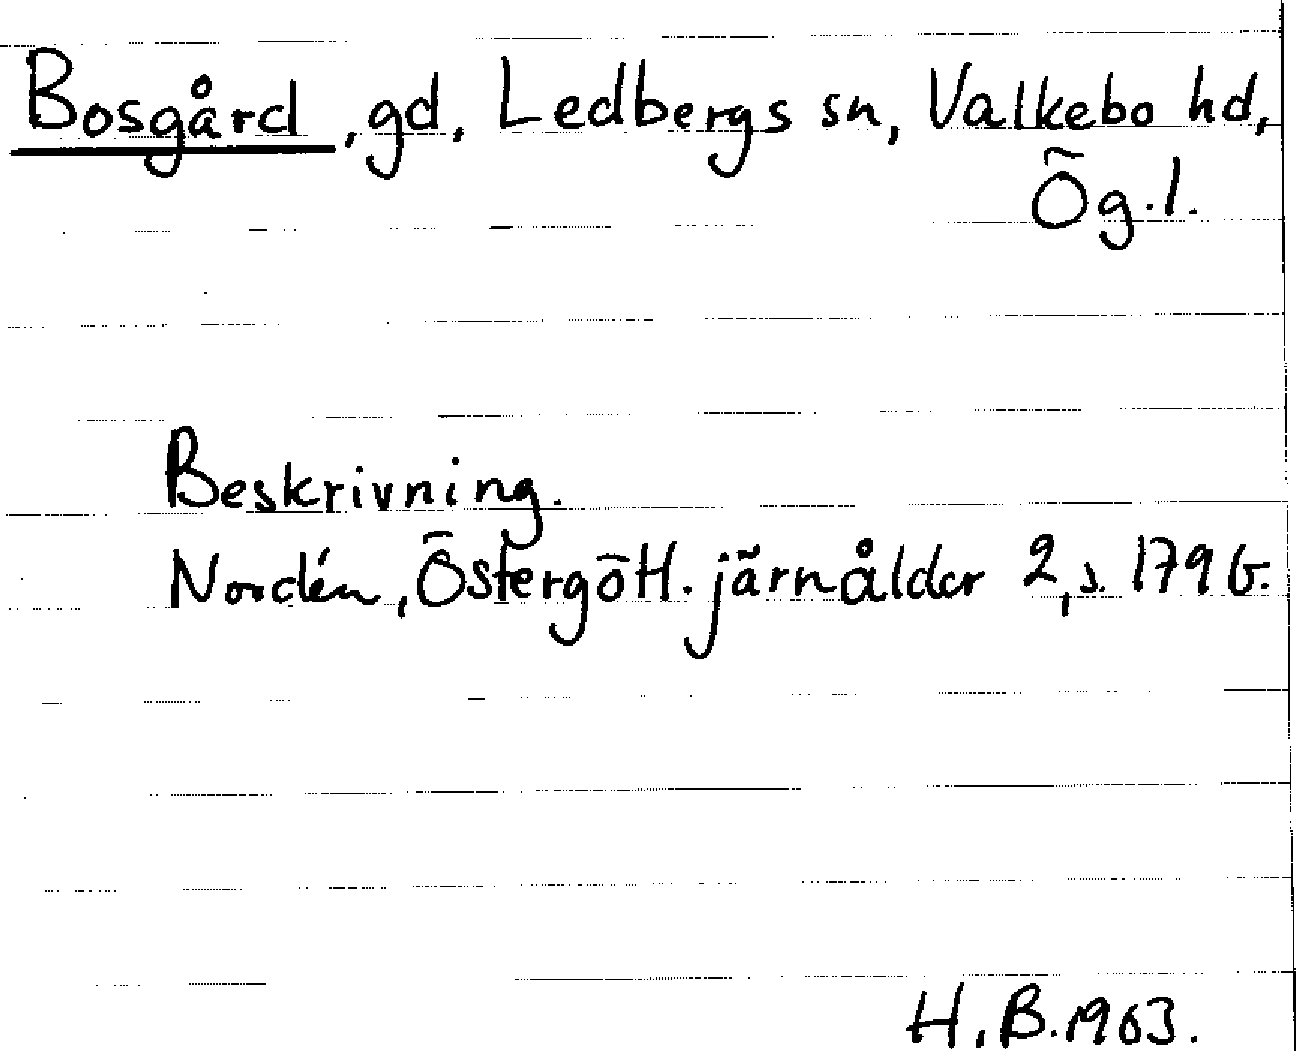 Bosgård, gd, Ledbergs sn, Valkebo hd,
Ög.l.
Beskrivning.
Nordén, Östergötl. järnålder 2, s. 179 b.
H.B. 1963.